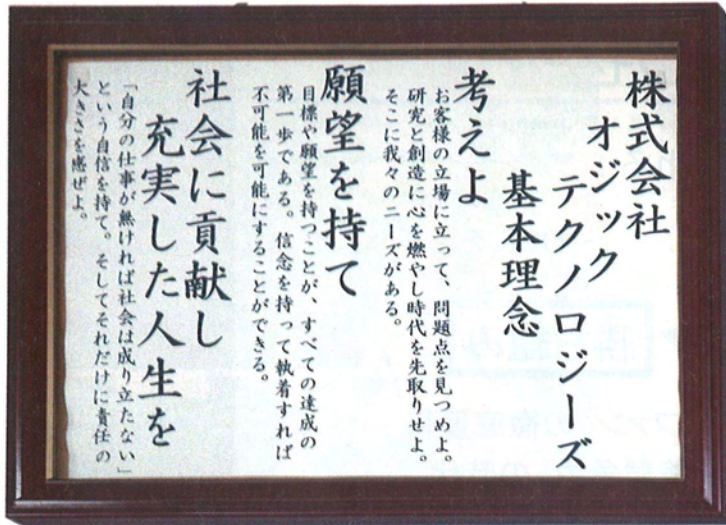 株式会社
オジック
テクノロジーズ
基本理念
考えよ
お客様の立場に立って、問題点を見つめよ。
研究と創造に心を燃やし時代を先取りせよ。
そこに我々のニーズがある。
願望を持て
目標や願望を持つことが、すべての達成の
第一歩である。信念を持って執着すれば
不可能を可能にすることができる。
社会に貢献し
充実した人生を
「自分の仕事が無ければ社会は成り立たない」
という自信を持て。そしてそれだけに責任の
大きさを感ぜよ。